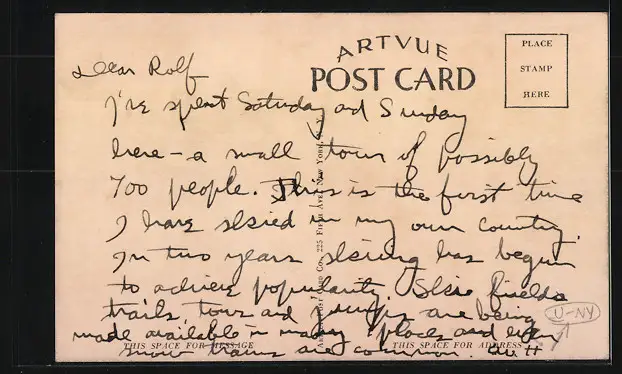 ARTVUE
POST CARD
PLACE
STAMP
HERE
Dear Rolf
I've spent Saturday and Sunday
here - a small town of possibly
700 people. This is the first time
I have skiied in my own country.
In two years skiing has begun
to achieve popularity. Skie fields
trails, tows and jumps are being
made available in many places and even
snow trains are common.
U-NY
225 FIFTH AVE., NEW YORK, N. Y.
THIS SPACE FOR MESSAGE
THIS SPACE FOR ADDRESS